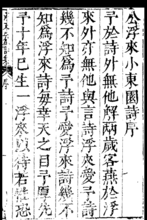 公浮來小東園詩序
予於詩外無他解兩歲客燕於浮
來外亦無他與言詩浮來愛予詩
幾不知為予詩予愛浮來詩幾不
知為浮來詩每幸天之目予
予十年巳生一浮來以待若